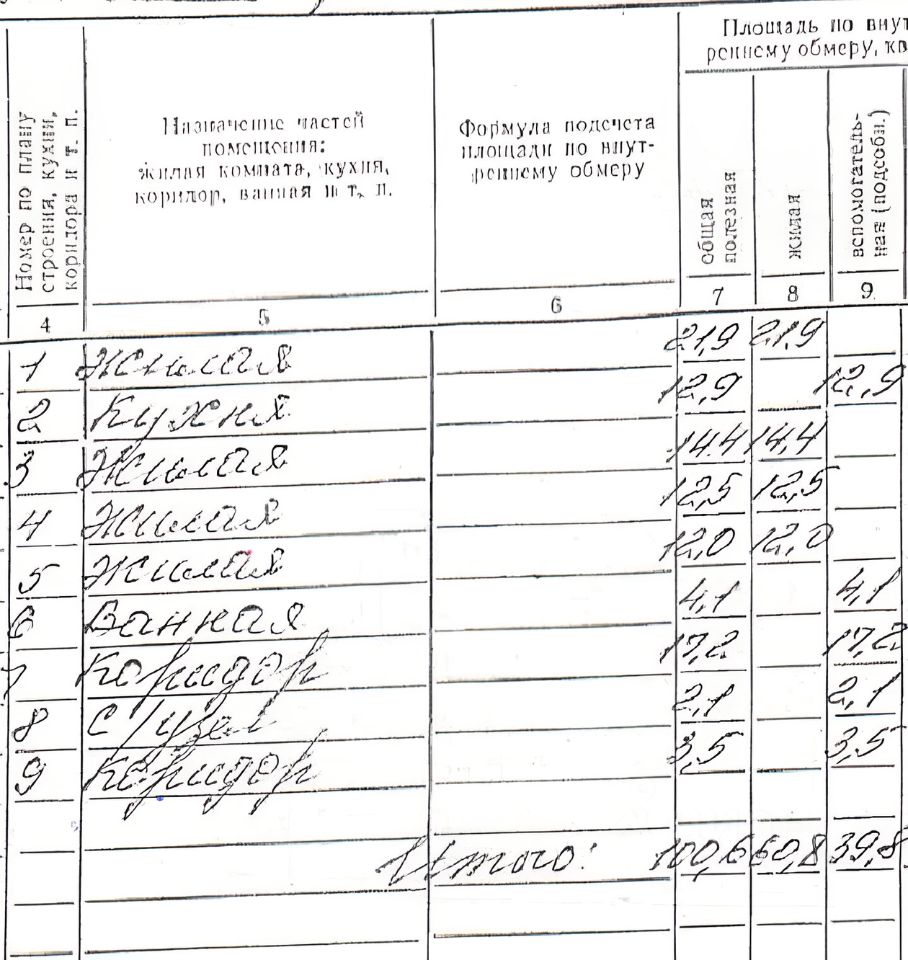 Площадь по внут
реннему обмеру, кв
Номер по плану
строения, кухни,
коридора и т. п.
Назначение частей
помещения:
жилая комната, кухня,
коридор, ванная и т. п.
Формула подсчета
площади по внут-
реннему обмеру
общая
полезная
жилая
вспомогатель-
ная (подсобн.)
4 5 6 7 8 9
1 Жилая 21,9 21,9
2 Кухня 12,9 12,9
3 Жилая 14,4 14,4
4 Жилая 12,5 12,5
5 Жилая 12,0 12,0
6 Ванная 4,1 4,1
7 Коридор 17,2 17,2
8 С/узел 2,1 2,1
9 Коридор 3,5 3,5
Итого: 100,6 60,8 39,8